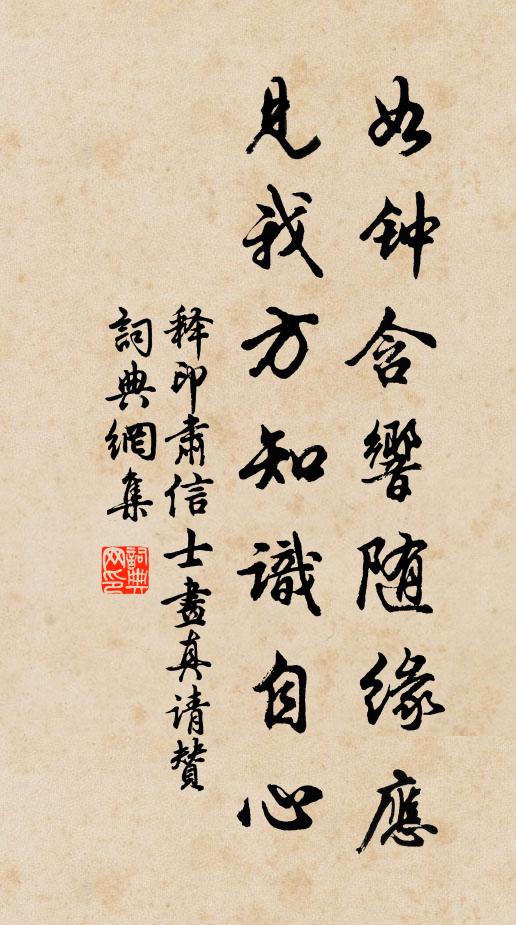 如钟含響随缘應
見我方知識自心
释印肃信士畫真请賛
詞典網集
詞典网印